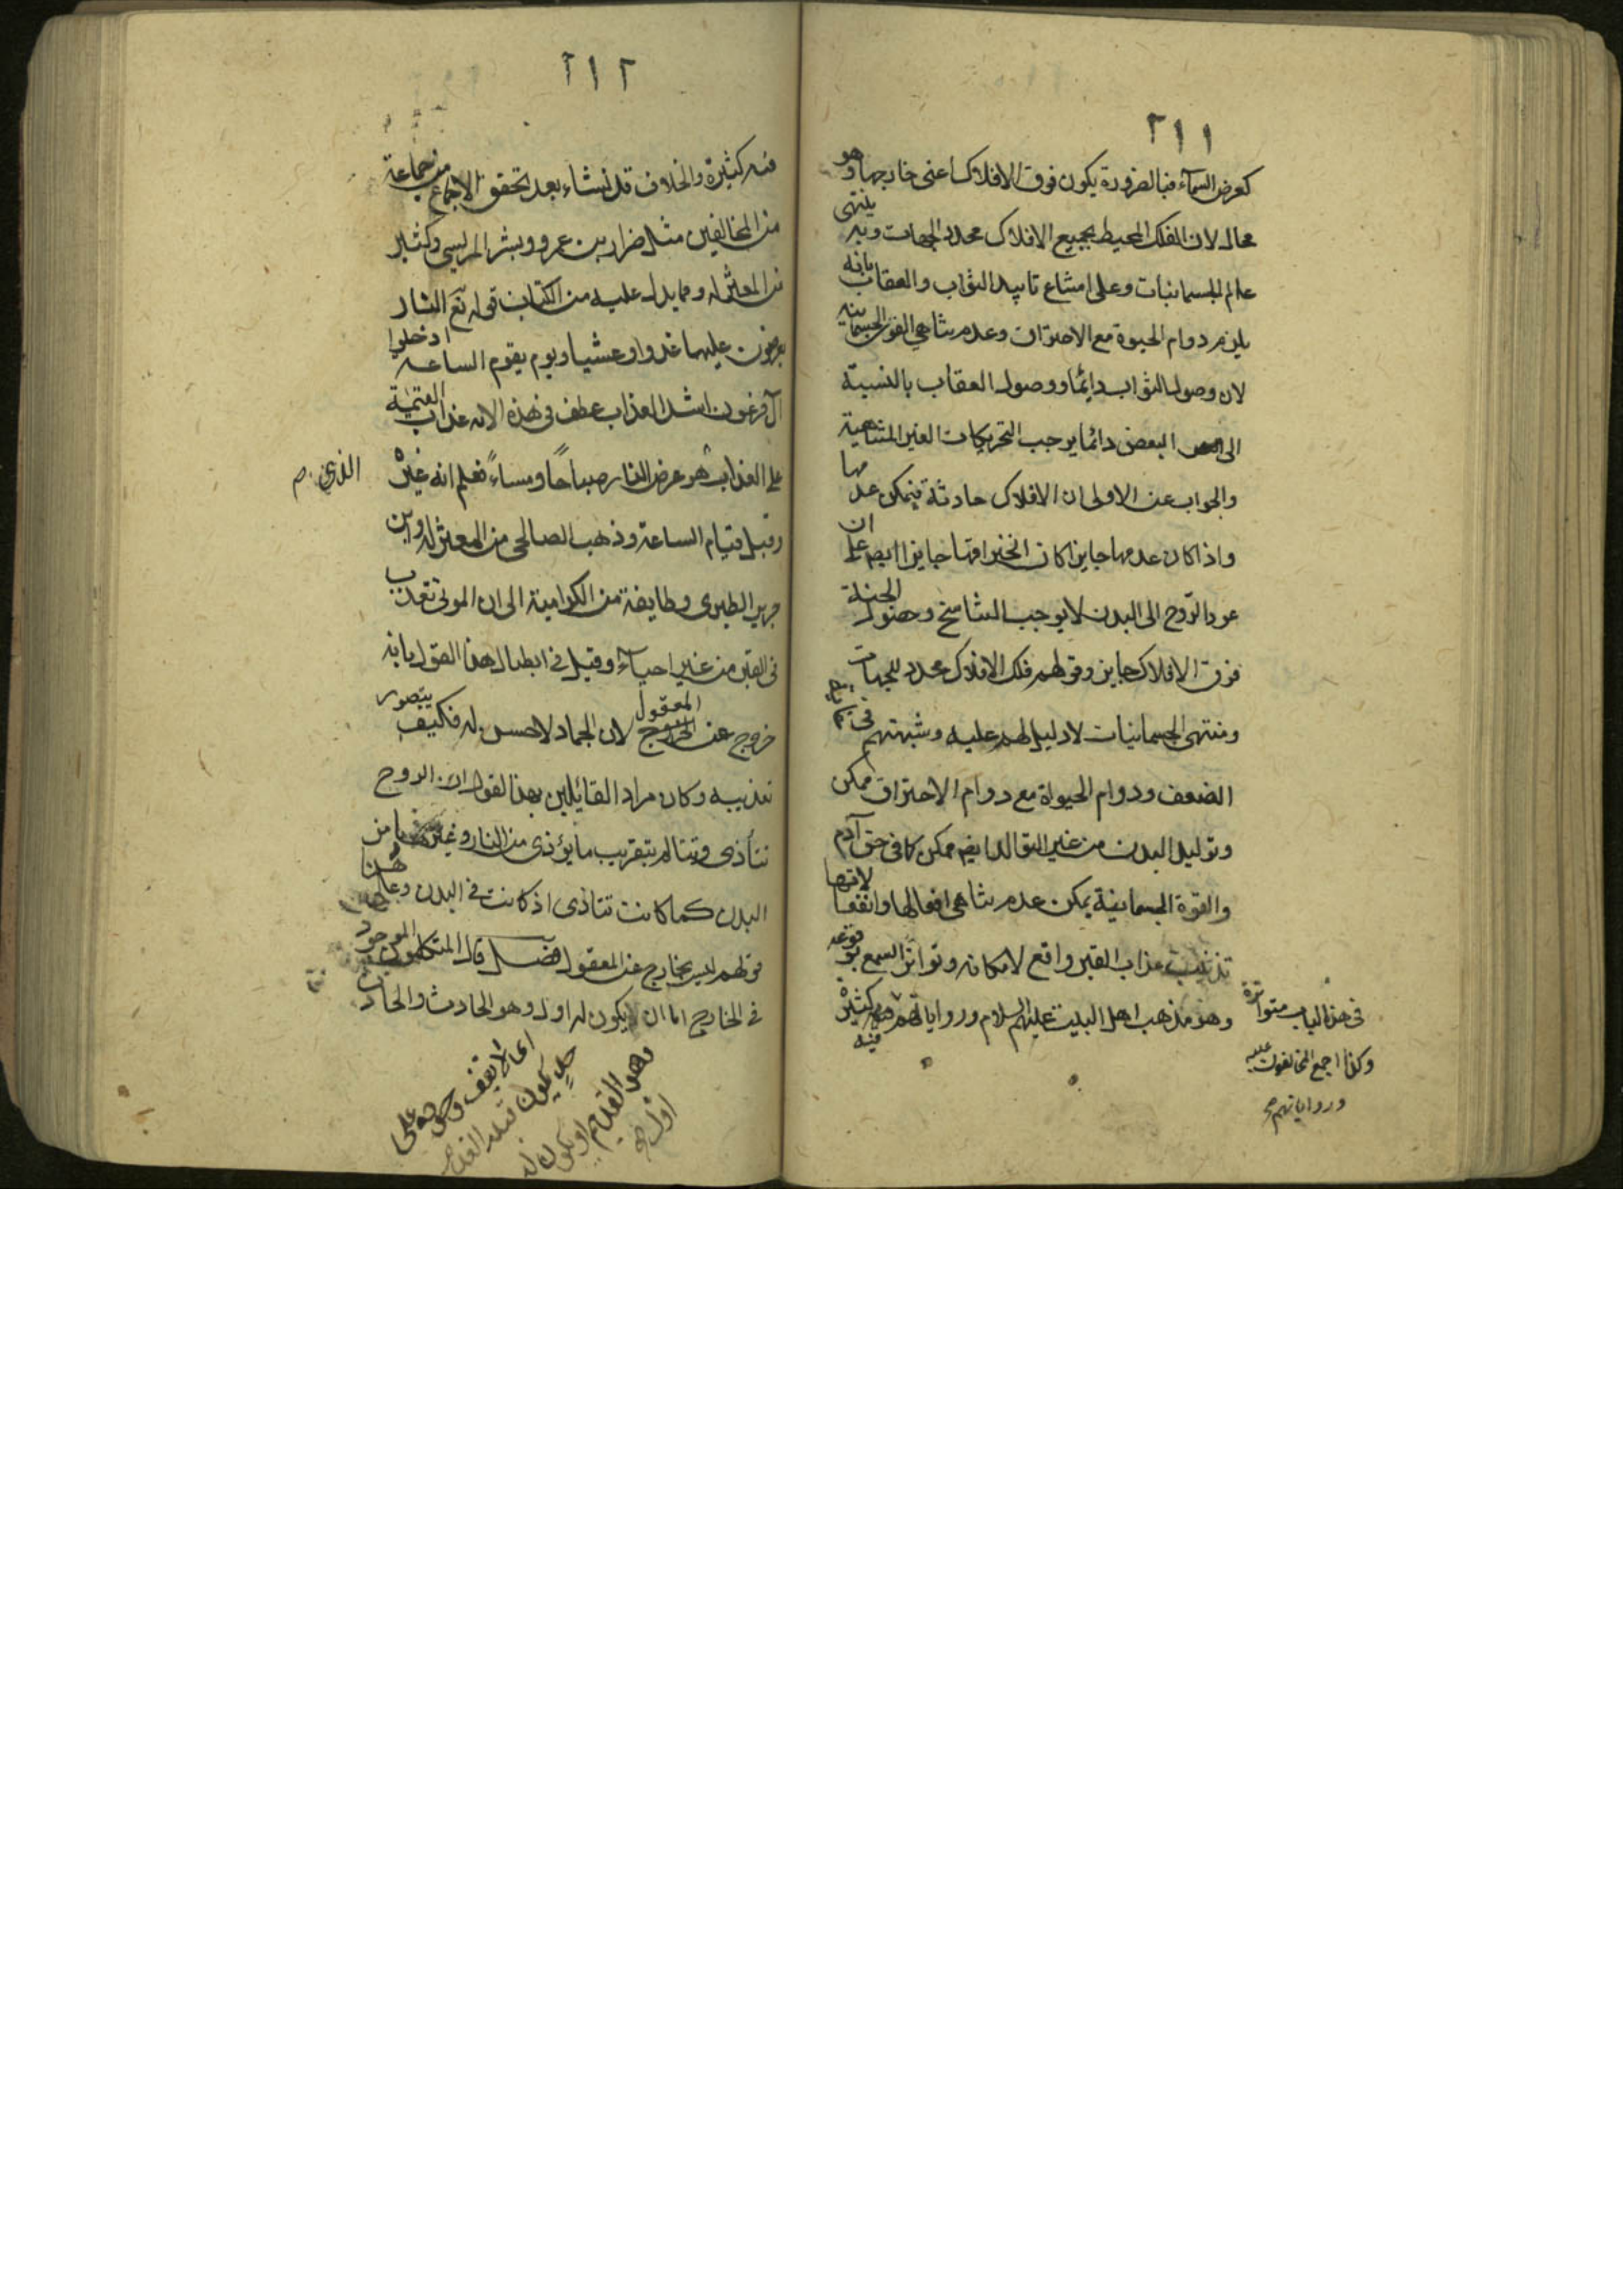 ٢١١
كعرض السمآء فبالضرورة يكون فوق الافلاك اعنى خارجها وهو
محال لان الفلك المحيط بجميع الافلاك محدد الجهات وبه ينتهى
عالم الجسمانيات وعلى امتناع تاييد الثواب والعقاب بانه
يلزم دوام الحيوة مع الاحتراق وعدم تناهي القوى الجسمانية
لان وصول الثواب دائما ووصول العقاب بالنسبة
الى البعض دائما يوجب التحريكات الغير المتناهية
والجواب عن الاولى ان الافلاك حادثة فيمكن عدمها
واذا كان عدمها جايزا كان انخراقها جايزا ايضم على ان
عود الروح الى البدن لا يوجب التناسخ وحصول الجنة
فوق الافلاك جايز وقولهم فلك الافلاك محدد للجهات
ومنتهى الجسمانيات لا دليل لهم عليه وشبهتهم فى
الضعف ودوام الحيواة مع دوام الاحتراق ممكن
وتوليد البدن من غير التوالد ايضم ممكن كما فى حق آدم
والقوة الجسمانية يمكن عدم تناهى افعالها وانفعالاتها
تذنيب عذاب القبر واقع لامكانه وتواتر السمع بوقوعه
وهو مذهب اهل البيت عليهم السلام ورواياتهم كثيرة فيه
فى هذا الباب متواترة
وكذا اجمع المخالفون عليه
ورواياتهم صح
٢١٢
فيه كثيرة والخلاف قد نشاء بعد تحقق الاجماع من جماعة
من المخالفين مثل ضرار بن عمرو وبشر المريسى وكثير
من المعتزله ومما يدل عليه من الكتاب قوله تع النار
يعرضون عليها غدوا وعشيا ويوم يقوم الساعة ادخلوا
آل فرعون اشد العذاب عطف فى هذه الايه عذاب القيمة
على العذاب هو عرض النار صباحًا ومساءً فعلم انه غيره
الذي صح
وقبل قيام الساعة وذهب الصالحى من المعتزله وبن
جرير الطبرى وطايفة من الكرامية الى ان الموتى تعذب
فى القبر من غير احياء وقيل فى ابطال هذا القول بانه
خروج عن المعقول لان الجماد لا حس له فكيف يتصور
تعذيبه وكان مراد القائلين بهذا لقول ان الروح
تتأذى وتتالم بتقريب ما يؤذى من النار وغيرها من
البدن كما كانت تتاذى اذ كانت فى البدن وعلى هذا
قولهم ليس بخارج عن المعقول فصل قال المتكلمون الموجود
فى الخارج اما ان لا يكون له اول وهو الحادث والحادث
وهو القديم او يكون له
اول صح
اى لا يقف وجوده على